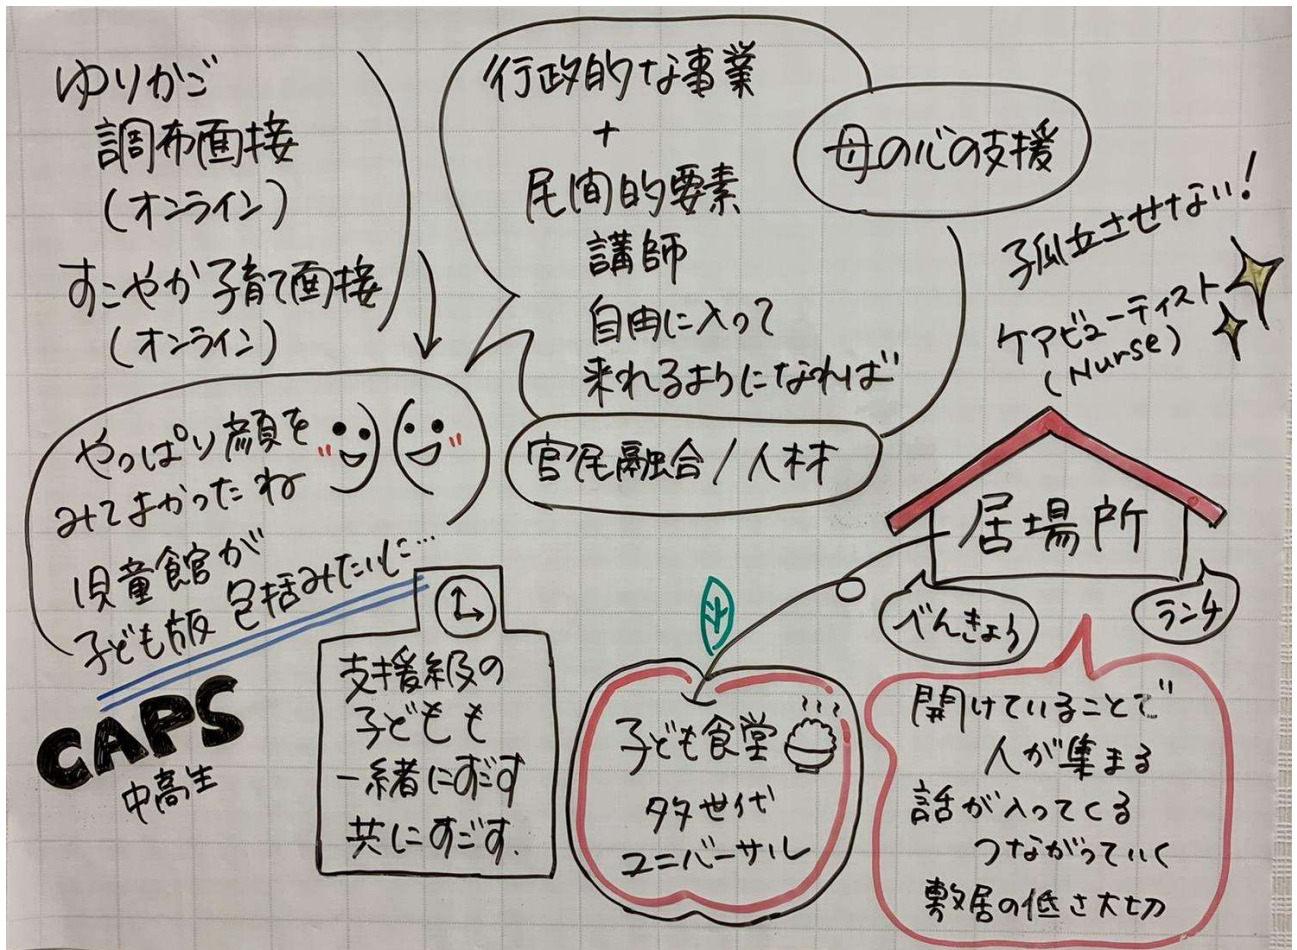 ゆりかご
調布面接
(オンライン)
すこやか子育て面接
(オンライン)
行政的な事業
+
民間的要素
講師
自由に入って
来れるようになれば
母の心の支援
官民融合/人材
孤立させない!
ケアビューティスト
(Nurse)
やっぱり顔を
みてよかったね
児童館が
子ども版 包括みたいに…
CAPS
中高生
支援級の
子どもも
一緒にすごす
共にすごす.
子ども食堂
多世代
ユニバーサル
居場所
べんきょう
ランチ
開けていることで
人が集まる
話が入ってくる
つながっていく
敷居の低さ大切